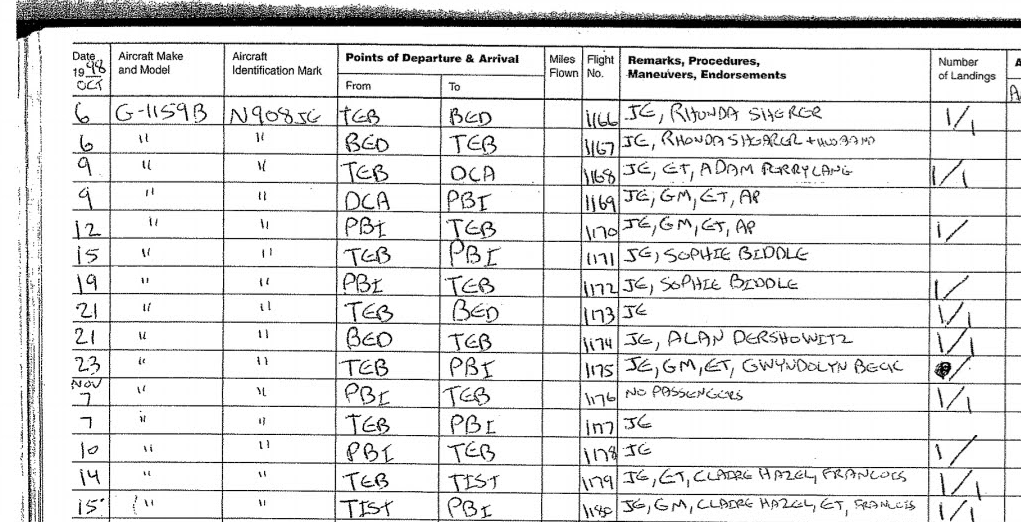 Date Aircraft Make Aircraft Points of Departure & Arrival Miles Flight Remarks, Procedures, Number A
1998 and Model Identification Mark From To Flown No. Maneuvers, Endorsements of Landings
OCT
6 G-1159B N908JE TEB BED 1166 JE, RHONDA SHERER 1/1
6 " " BED TEB 1167 JE, RHONDA SHEARER + HUSBAND
9 " " TEB DCA 1168 JE, ET, ADAM PERRY LANG 1/1
9 " " DCA PBI 1169 JE, GM, ET, AP
12 " " PBI TEB 1170 JE, GM, ET, AP 1/
15 " " TEB PBI 1171 JE, SOPHIE BIDDLE
19 " " PBI TEB 1172 JE, SOPHIE BIDDLE 1/
21 " " TEB BED 1173 JE 1/1
21 " " BED TEB 1174 JE, ALAN DERSHOWITZ 1/1
23 " " TEB PBI 1175 JE, GM, ET, GWYNDOLYN BECK /
NOV
7 " " PBI TEB 1176 NO PASSENGERS 1/1
7 " " TEB PBI 1177 JE
10 " " PBI TEB 1178 JE 1/
14 " " TEB TIST 1179 JE, ET, CLAIRE HAZEL, FRANCOIS 1/1
15 " " TIST PBI 1180 JE, GM, CLAIRE HAZEL, ET, FRANCIS 1/1